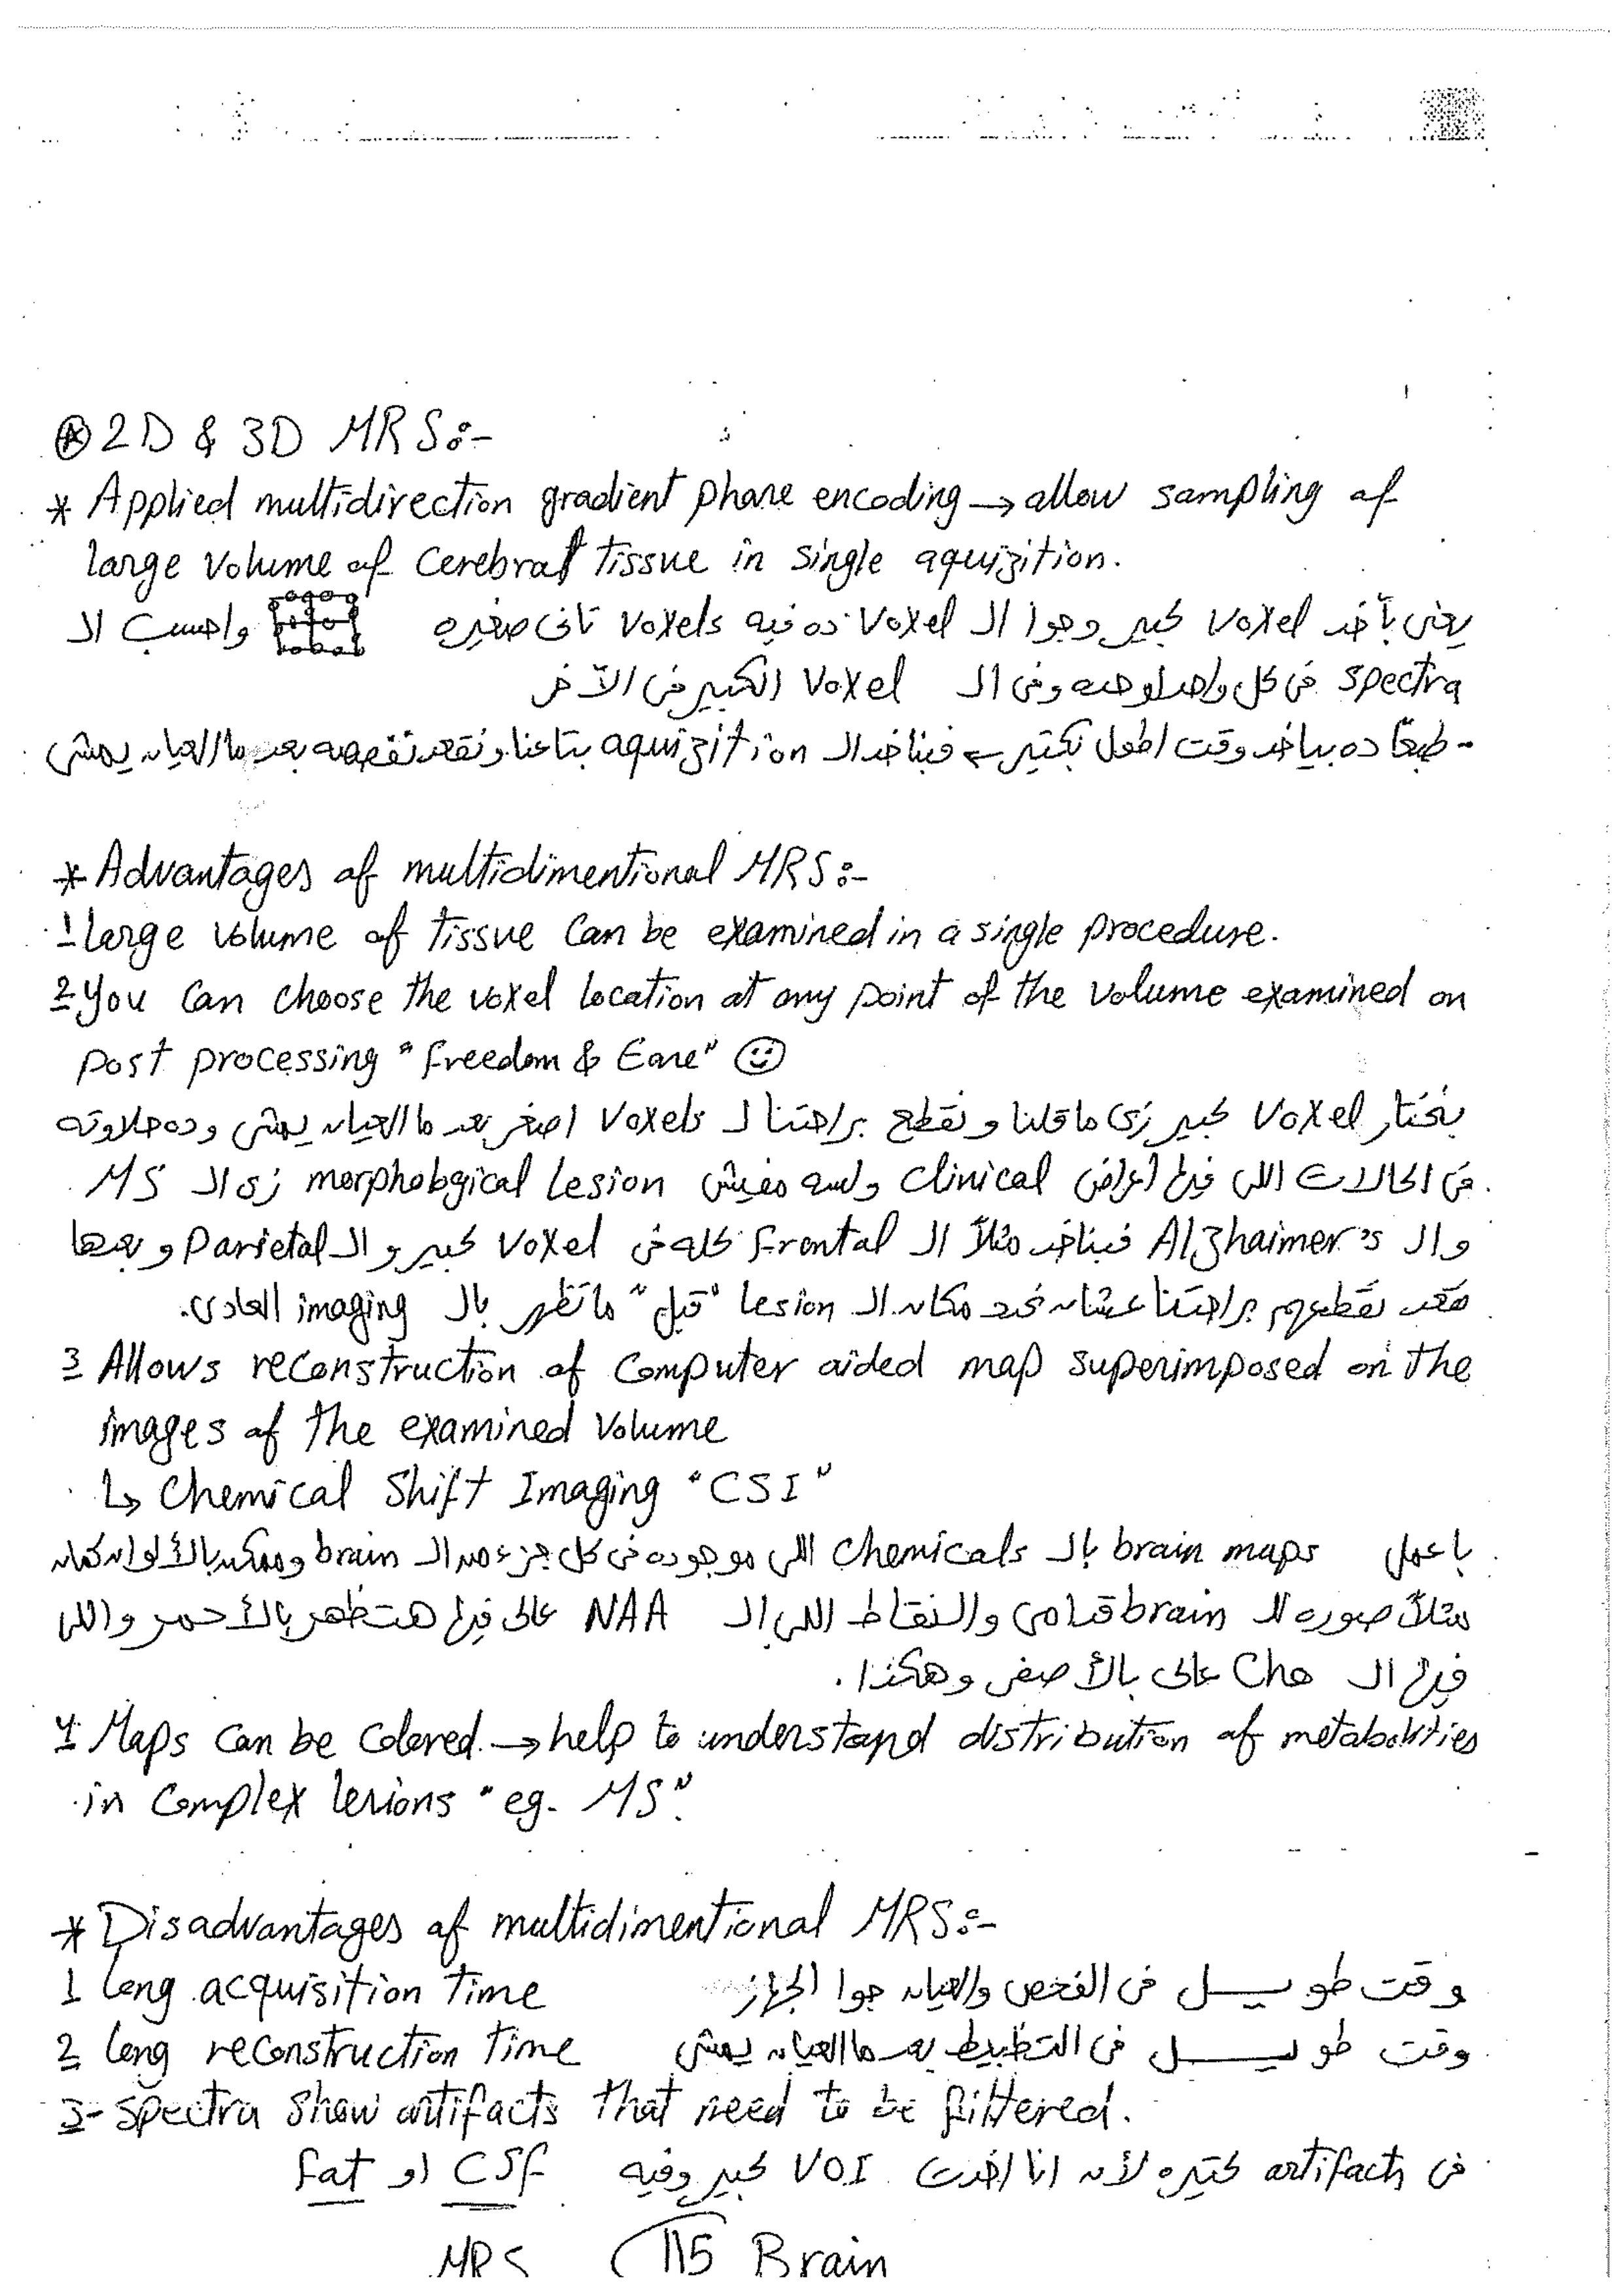 ⊛ 2D & 3D MRS:-
* Applied multidirection gradient phase encoding → allow sampling of
large volume of Cerebral tissue in single aquizition.
يعنى بآخد voxel كبير وجوا الـ voxel ده فيه voxels تانى صغيره واحسب الـ
spectra فى كل واحد لوحده وفى الـ voxel الكبير فى الآخر
- طبعًا ده بياخد وقت اطول بكتير ← فبناخد الـ aquizition بتاعنا ونقعد نقصصه بعد ما العيان يمشى
* Advantages of multidimentional MRS:-
1 large volume of tissue can be examined in a single procedure.
2 You can choose the voxel location at any point of the volume examined on
post processing "freedom & Ease" ☺
بنختار voxel كبير زى ما قلنا ونقطع براحتنا لـ voxels اصغر بعد ما العيان يمشى وده حلاوته
فى الحالات اللى فيها أعراض clinical ولسه مفيش morphological lesion زى الـ MS
والـ Alzhaimer's فبناخد مثلاً الـ frontal كله فى voxel كبير والـ parietal وبعدها
نقعد نقطعهم براحتنا عشان نحدد مكان الـ lesion "قبل" ما تظهر بالـ imaging العادى.
3 Allows reconstruction of computer aided map superimposed on the
images of the examined volume
↳ Chemical Shift Imaging "CSI"
باعمل brain maps بالـ chemicals اللى موجوده فى كل جزء من الـ brain وممكن بالألوان كمان
مثلاً صوره الـ brain قدامى والنقاط اللى الـ NAA عالى فيها هتظهر بالأحمر واللى
فيها الـ Cho عالى بالأصفر وهكذا.
4 Maps can be colored → help to understand distribution of metabolities
in complex lesions "eg. MS".
* Disadvantages of multidimentional MRS:-
1 long acquisition time وقت طويـــل فى الفحص والعيان جوا الجهاز
2 long reconstruction time وقت طويـــل فى التظبيط بعد ما العيان يمشى
3- spectra show artifacts that need to be filtered.
فى artifacts كتيره لأن انا اخدت VOI كبير وفيه CSF او fat
MRS 115 Brain